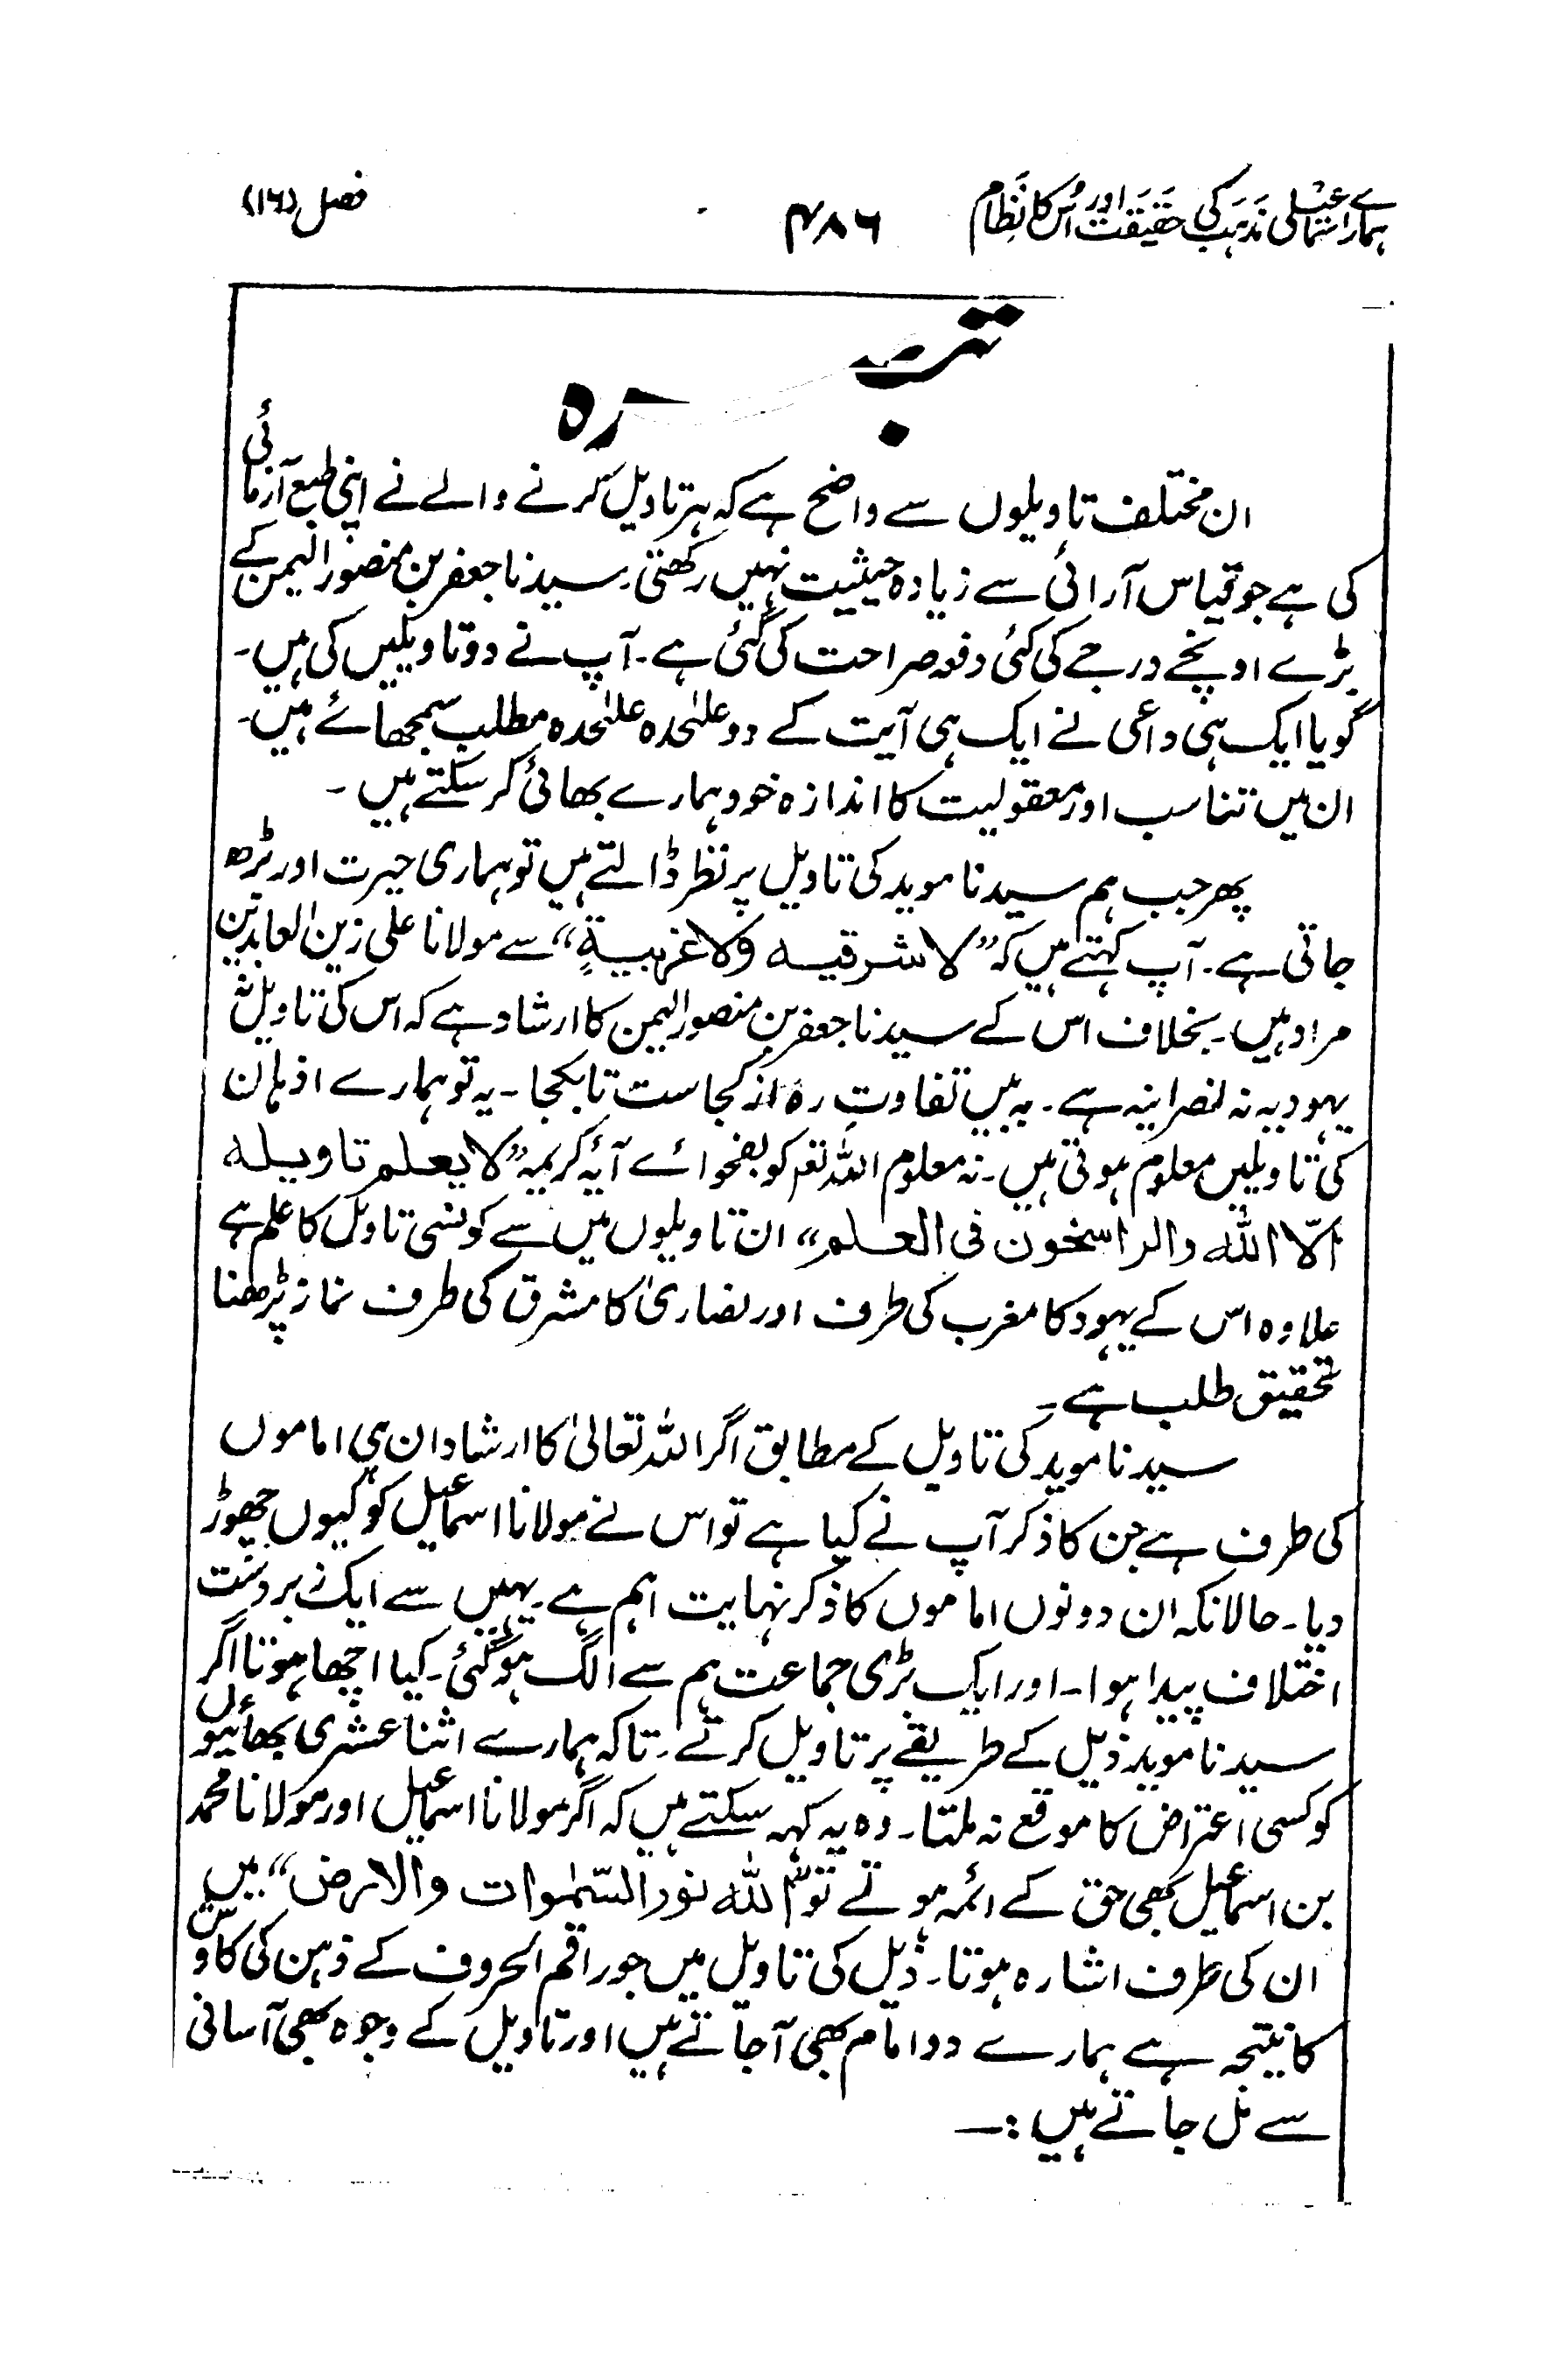 ہمارے اسماعیلی مذہب کی حقیقت اور اس کا نظام
۴۸۶
فصل (۱۶)
تبصرہ
ان مختلف تاویلوں سے واضح ہے کہ ہر تاویل کرنے والے نے اپنی طبع آزمائی
کی ہے جو قیاس آرائی سے زیادہ حیثیت نہیں رکھتی۔ سیدنا جعفر بن منصور الیمن کے
بڑے اونچے درجے کی کئی دفعہ صراحت کی گئی ہے۔ آپ نے دو تاویلیں کی ہیں۔
گویا ایک ہی داعی نے ایک ہی آیت کے دو علیٰحدہ علیٰحدہ مطلب سمجھائے ہیں۔
ان میں تناسب اور معقولیت کا اندازہ خود ہمارے بھائی کر سکتے ہیں ۔
پھر جب ہم سیدنا موید کی تاویل پر نظر ڈالتے ہیں تو ہماری حیرت اور بڑھ
جاتی ہے۔ آپ کہتے ہیں کہ ”لا شرقیه ولا غربیةٍ“ سے مولانا علی زین العابدین
مراد ہیں۔ بخلاف اس کے سیدنا جعفر بن منصور الیمن کا ارشاد ہے کہ اس کی تاویل نہ
یہودیہ نہ نصرانیہ ہے۔ بہ بیں تفاوتِ رہ از کجاست تا بکجا۔ یہ تو ہمارے اذہان
کی تاویلیں معلوم ہوتی ہیں۔ نہ معلوم اللہ تعم کو بفحوائے آیۂ کریمہ ”لا یعلم تاویله
الّا الله والراسخون فی العلم“ ان تاویلوں میں سے کونسی تاویل کا علم ہے
علاوہ اس کے یہود کا مغرب کی طرف اور نصاریٰ کا مشرق کی طرف نماز پڑھنا
تحقیق طلب ہے۔
سیدنا موید کی تاویل کے مطابق اگر اللہ تعالیٰ کا ارشاد ان ہی اماموں
کی طرف ہے جن کا ذکر آپ نے کیا ہے تو اس نے مولانا اسماعیل کو کیوں چھوڑ
دیا۔ حالانکہ ان دونوں اماموں کا ذکر نہایت اہم ہے۔ یہیں سے ایک زبردست
اختلاف پیدا ہوا۔ اور ایک بڑی جماعت ہم سے الگ ہو گئی۔ کیا اچھا ہوتا اگر
سیدنا موید ذیل کے طریقے پر تاویل کرتے۔ تاکہ ہمارے اثنا عشری بھائیوں
کو کسی اعتراض کا موقع نہ ملتا۔ وہ یہ کہہ سکتے ہیں کہ اگر مولانا اسماعیل اور مولانا محمد
بن اسماعیل بھی حق کے ائمہ ہوتے تو ”الله نور السّمٰوات والارض“ میں
ان کی طرف اشارہ ہوتا۔ ذیل کی تاویل میں جو راقم الحروف کے ذہن کی کاوش
کا نتیجہ ہے ہمارے دو امام بھی آجاتے ہیں اور تاویل کے وجوہ بھی آسانی
سے مل جاتے ہیں :—